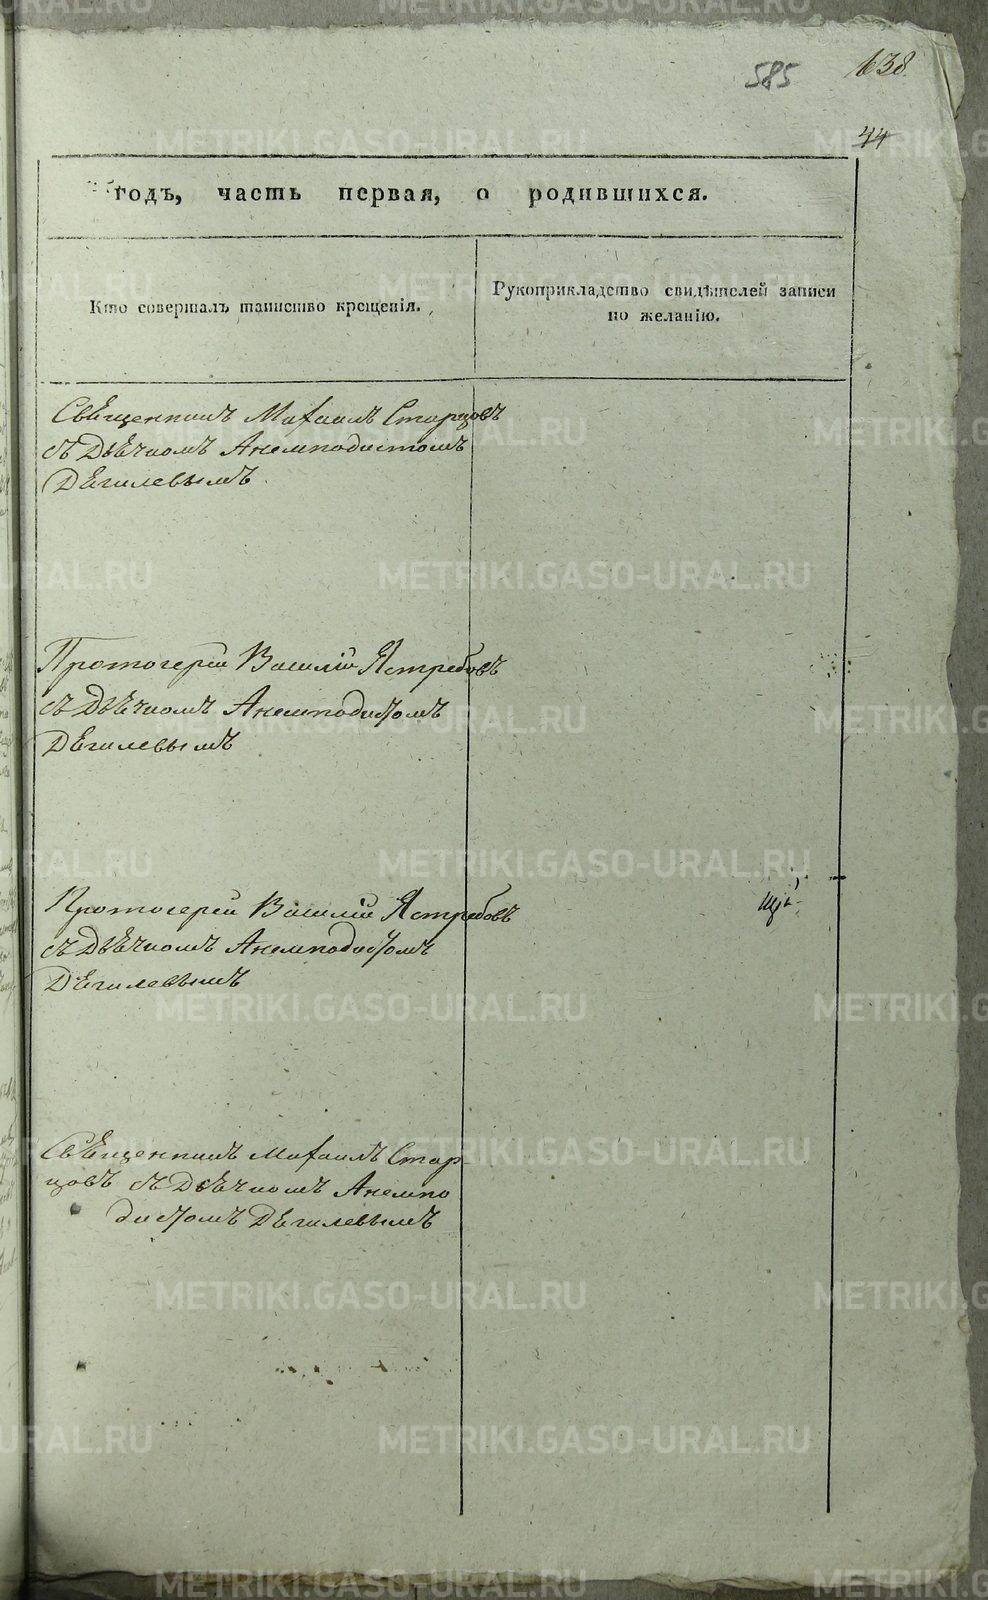 585 638
44
годъ, часть первая, о родившихся.
Кто совершалъ таинство крещенія.
Рукоприкладство свидѣтелей записи
по желанію.
Священникъ Михаилъ Старцовъ
съ Дьячкомъ Анемподистомъ
Дѣгилевымъ
Протоіерей Василій Ястребовъ
съ Дьячкомъ Анемподистомъ
Дѣгилевымъ
Протоіерей Василій Ястребовъ
съ Дьячкомъ Анемподистомъ
Дѣгилевымъ
Священникъ Михаилъ Стар-
цовъ съ Дьячкомъ Анемпо
дистомъ Дѣгилевымъ
METRIKI.GASO-URAL.RU